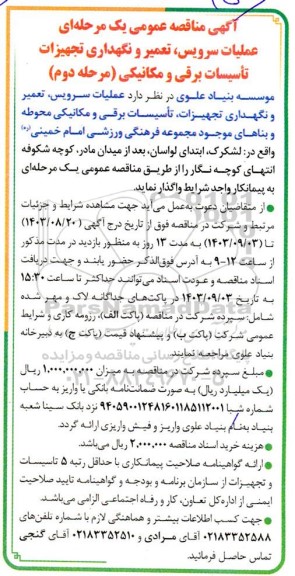 آگهی مناقصه عمومی یک مرحله‌ای
عملیات سرویس، تعمیر و نگهداری تجهیزات
تأسیسات برقی و مکانیکی (مرحله دوم)
موسسه بنیاد علوی در نظر دارد عملیات سرویس، تعمیر
و نگهداری تجهیزات، تأسیسات برقی و مکانیکی محوطه
و بناهای موجود مجموعه فرهنگی ورزشی امام خمینی(ره)
واقع در: لشکرک، ابتدای لواسان، بعد از میدان مادر، کوچه شکوفه
انتهای کوچه نگار را از طریق مناقصه عمومی یک مرحله‌ای
به پیمانکار واجد شرایط واگذار نماید.
● از متقاضیان دعوت به‌عمل می‌آید جهت مشاهده شرایط و جزئیات
مرتبط و شرکت در مناقصه فوق از تاریخ درج آگهی (۱۴۰۳/۰۸/۲۰)
تا (۱۴۰۳/۰۹/۰۳) به مدت ۱۳ روز به منظور بازدید در مدت مذکور
از ساعت ۹-۱۲ به آدرس فوق‌الذکر حضور یابند و جهت دریافت
اسناد مناقصه و عودت اسناد می‌توانند حداکثر تا ساعت ۱۵:۳۰
به تاریخ ۱۴۰۳/۰۹/۰۳ در پاکت‌های جداگانه لاک و مهر شده
شامل: سپرده شرکت در مناقصه (پاکت الف)، رزومه کاری و شرایط
عمومی شرکت (پاکت ب) و پیشنهاد قیمت (پاکت ج) به دبیرخانه
بنیاد علوی مراجعه نمایند.
● مبلغ سپرده شرکت در مناقصه به میزان ۱.۰۰۰.۰۰۰.۰۰۰ ریال
(یک میلیارد ریال) به صورت ضمانت‌نامه بانکی یا واریز به حساب
شماره شبا ۹۴۰۵۹۰۰۱۲۴۸۱۶۰۱۱۸۵۱۱۲۰۰۱ نزد بانک سینا شعبه
بنیاد به‌نام بنیاد علوی واریز و فیش واریزی ارائه گردد.
● هزینه خرید اسناد مناقصه ۲.۰۰۰.۰۰۰ ریال می‌باشد.
● ارائه گواهینامه صلاحیت پیمانکاری با حداقل رتبه ۵ تاسیسات
و تجهیزات از سازمان برنامه و بودجه و گواهینامه تایید صلاحیت
ایمنی از اداره‌کل تعاون، کار و رفاه اجتماعی الزامی می‌باشد.
● جهت کسب اطلاعات بیشتر و هماهنگی لازم با شماره تلفن‌های
۰۲۱۸۳۳۵۲۵۸۸ آقای مرادی و ۰۲۱۸۳۳۵۲۵۱۰ آقای گنجی
تماس حاصل فرمائید.